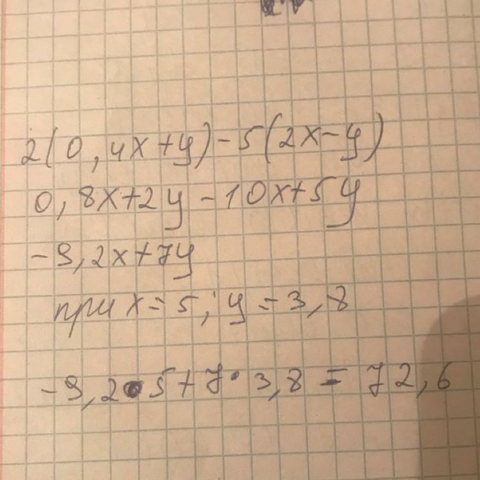 2(0,4x+y)-5(2x-y)
0,8x+2y-10x+5y
-9,2x+7y
при x=5; y=3,8
-9,2•5+7·3,8=72,6